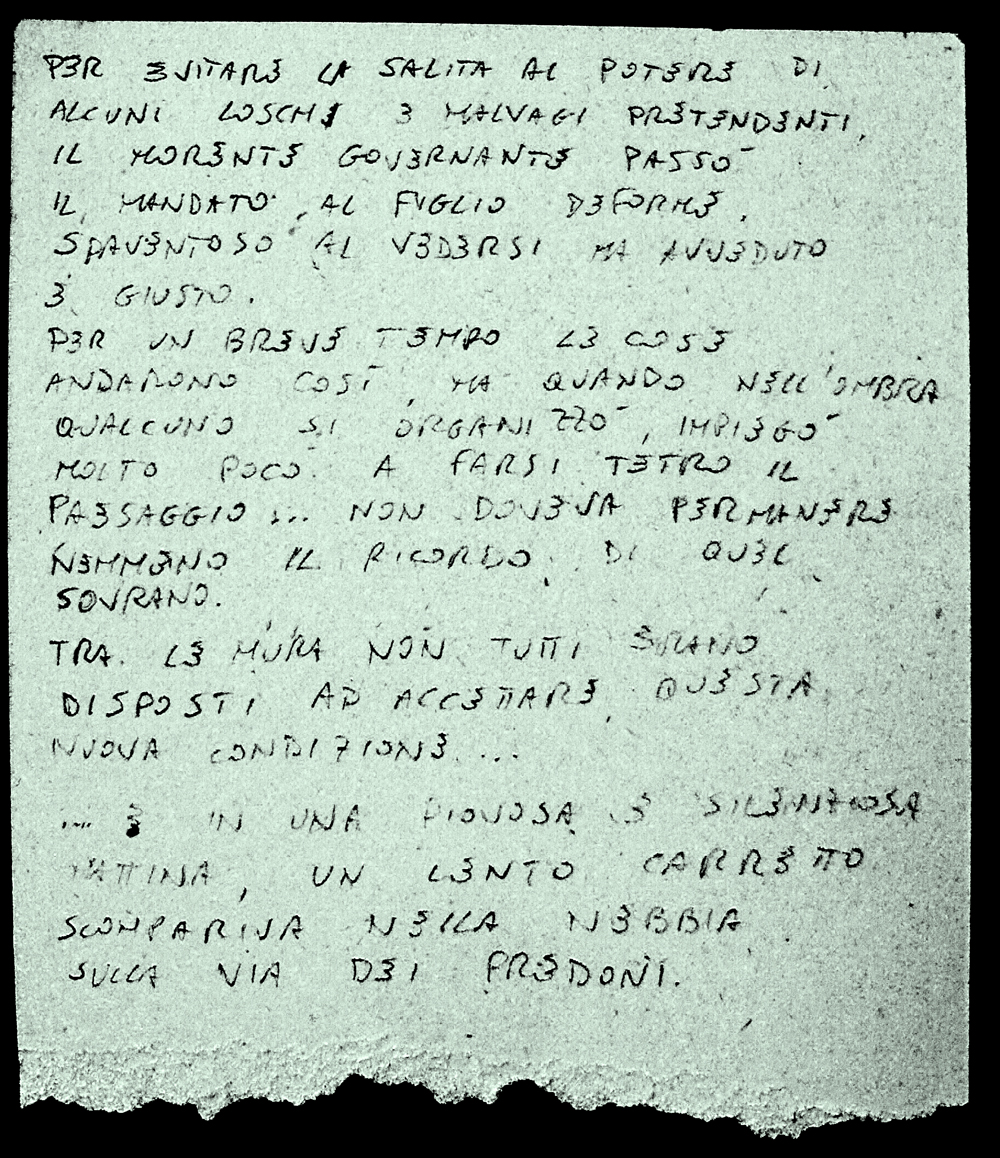 PER EVITARE LA SALITA AL POTERE DI
ALCUNI LOSCHI E MALVAGI PRETENDENTI,
IL MORENTE GOVERNANTE PASSÒ
IL MANDATO AL FIGLIO DEFORME,
SPAVENTOSO AL VEDERSI MA AVVEDUTO
E GIUSTO.
PER UN BREVE TEMPO LE COSE
ANDARONO COSÌ, MA QUANDO NELL'OMBRA
QUALCUNO SI ORGANIZZÒ, IMPIEGÒ
MOLTO POCO A FARSI TETRO IL
PAESAGGIO ... NON DOVEVA PERMANERE
NEMMENO IL RICORDO DI QUEL
SOVRANO.
TRA LE MURA NON TUTTI ERANO
DISPOSTI AD ACCETTARE QUESTA
NUOVA CONDIZIONE ...
... E IN UNA PIOVOSA E SILENZIOSA
MATTINA, UN LENTO CARRETTO
SCOMPARIVA NELLA NEBBIA
SULLA VIA DEI PREDONI.